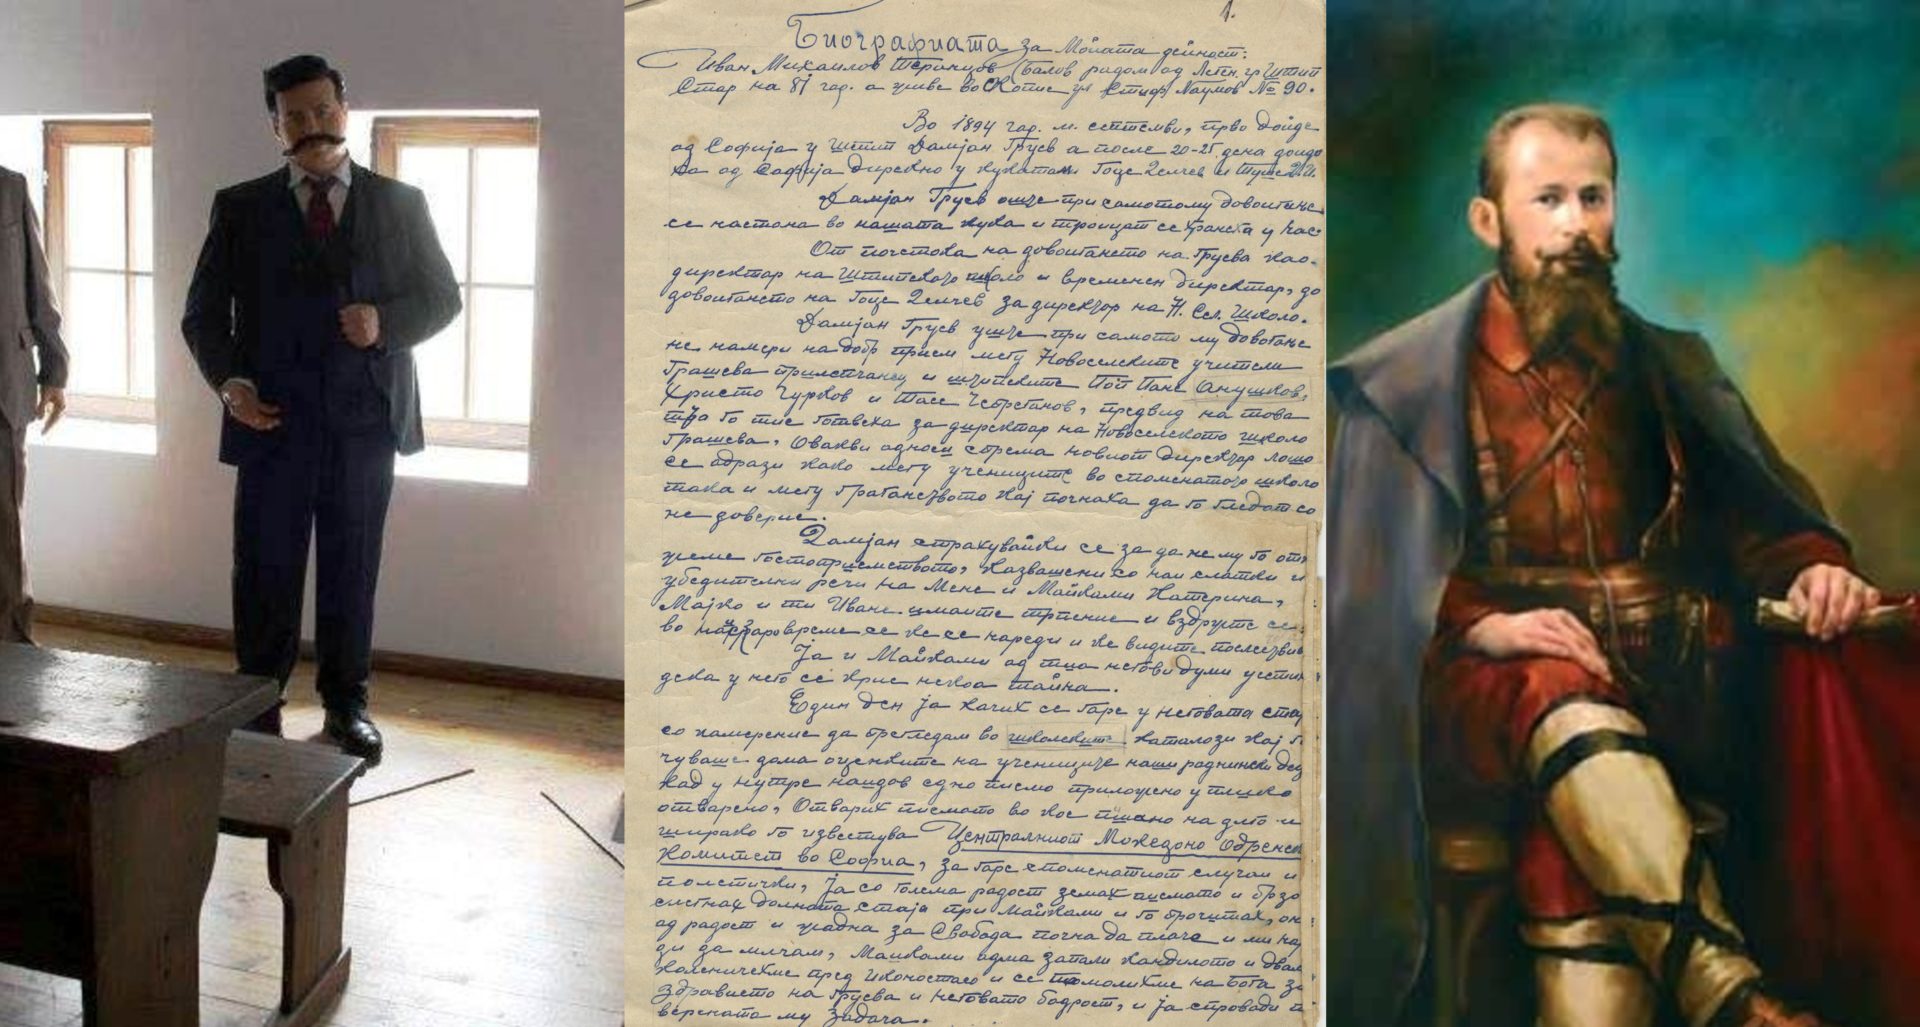 1.
Биографиата за Мойата дейност:
Иван Михаилов Теранцов (Балов родом од Легн. гр Штип
Стар на 87 год. а живе во Скопие ул Стиф. Наумов № 90.
Во 1894 год. м. септемви, прво дойде
од Софија у Штип Дамјан Груев а после 20-25. дена дойдо
ха од Софија директно у куката ни Гоце Делчев и
Дамјан Груев ошче при самотому довоѓање
се настана во нашата кука и троицат се ранета у нас
От почетока на довоѓането на Груева као
директар на Штипското школо и времен директар, до
довоѓането на Гоце Делчев за директор на Н. Сел. Школо.
Дамјан Груев ушче при самото му довоѓање
не намери на добр прием меѓу Новоселските учители
Грашева прилепчанец и штипските Поп Пане Анушков,
Христо Чурков и Тасе Чебреганов, предвид на това
што го тие готвеха за директар на Новоселското школо
Грашева. Овакви односи спрема новиот директор лошо
се одрази како меѓу учениците во споменатото школо
така и меѓу граѓанството кај почнаха да го гледат со
не доверие.
Дамјан страхувайки се за да не му го от
жеме гостоприемството, казваше ни со най слатки и
убедителни речи на Мене и Майками Катерина,
Мајко и ти Иване имайте трпение и вздружте се
во време се ке се нареди и ке видите
Ја и Майками од тија негови думи усети
дека у него се крие некоа тайна.
Един ден ја качих се горе у неговата стаја
со намерение да прегледам во школските каталози кај
чуваше дома оценките на учениците наши
кад у нутре наидов едно писмо приложено у плико
отварено, Отварих писмото во кое пишано на долго и
широко го известува Централниот Македоно Одренск
комитет во Софиа, за горе споменатиот случаи и
полетички, Ја со голема радост земах писмото и брзо
слегнах долната стаја при Майками и го прочитах, он
од радост и жадна за Свобода почна да плаче и ми на
ди да млчам, Майками одма запали кандилото и двам
коленичехме пред Иконостасо и се помолихме на бога за
Здравието на Груева и неговато бодрост, и ја спроводи
верската му Задача.